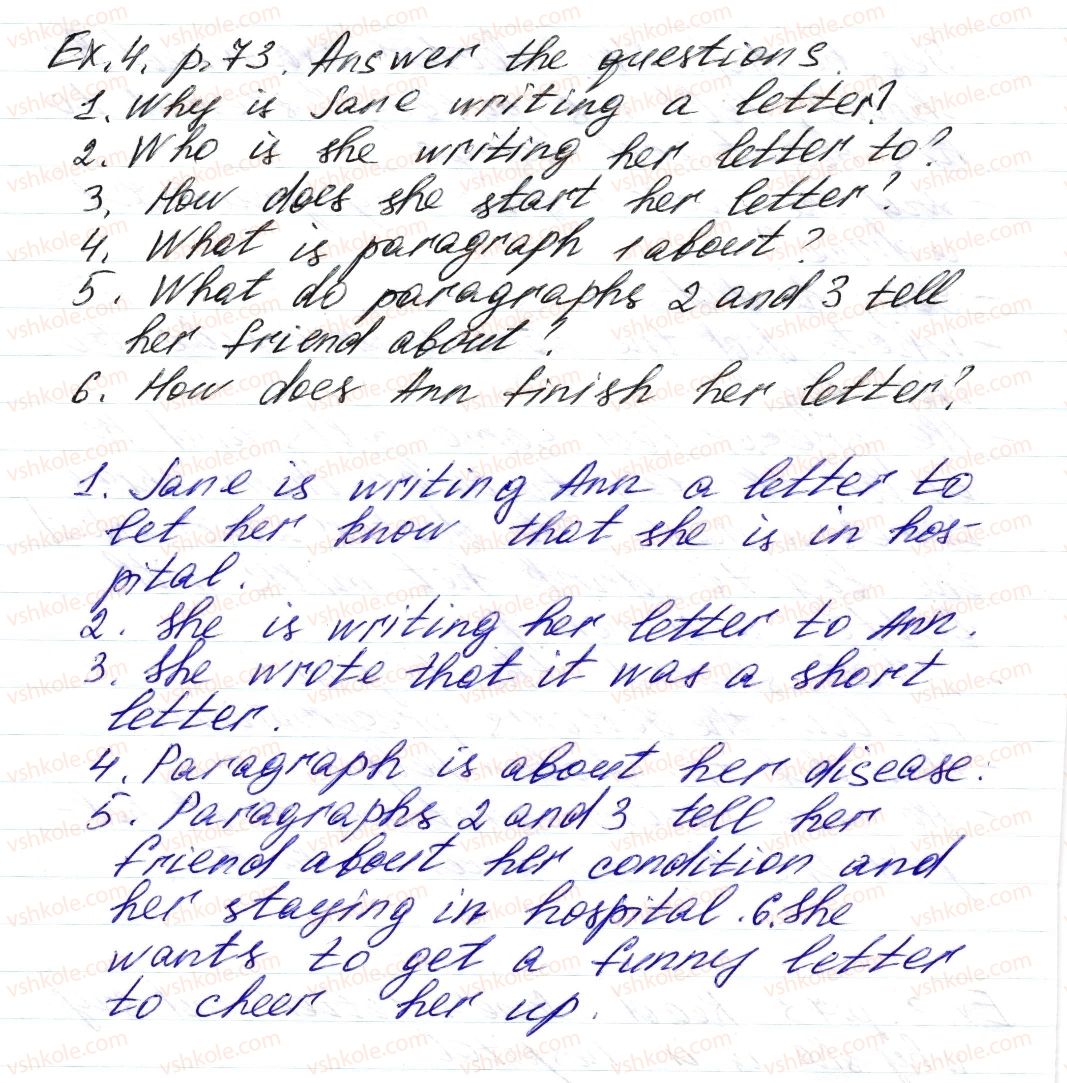 Ex.4. p.73. Answer the questions.
1. Why is Jane writing a letter?
2. Who is she writing her letter to?
3. How does she start her letter?
4. What is paragraph 1 about?
5. What do paragraphs 2 and 3 tell
her friend about?
6. How does Ann finish her letter?
1. Jane is writing Ann a letter to
let her know that she is in hos-
pital.
2. She is writing her letter to Ann.
3. She wrote that it was a short
letter.
4. Paragraph is about her disease.
5. Paragraphs 2 and 3 tell her
friend about her condition and
her staying in hospital. 6. She
wants to get a funny letter
to cheer her up.